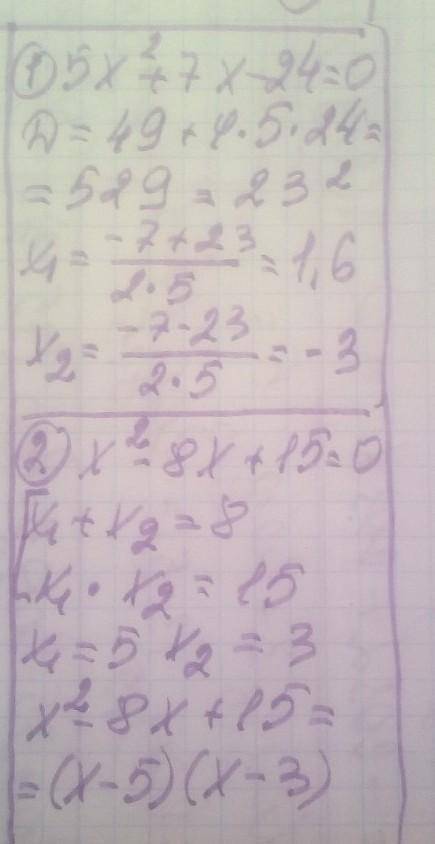 ① 5x² + 7x - 24 = 0
D = 49 + 4·5·24 =
= 529 = 23²
x₁ = (-7+23)/(2·5) = 1,6
x₂ = (-7-23)/(2·5) = -3
② x² - 8x + 15 = 0
x₁ + x₂ = 8
x₁ · x₂ = 15
x₁ = 5 x₂ = 3
x² - 8x + 15 =
= (x - 5)(x - 3)